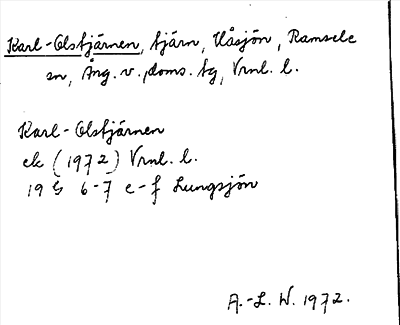 Karl-Olstjärnen, tjärn, Uåsjön, Ramsele
sn, Ång. v. doms. tg, Vrnl. l.
Karl-Olstjärnen
ek (1972) Vrnl. l.
19 G 6-7 e-f Lungsjön
A.-L. W. 1972.